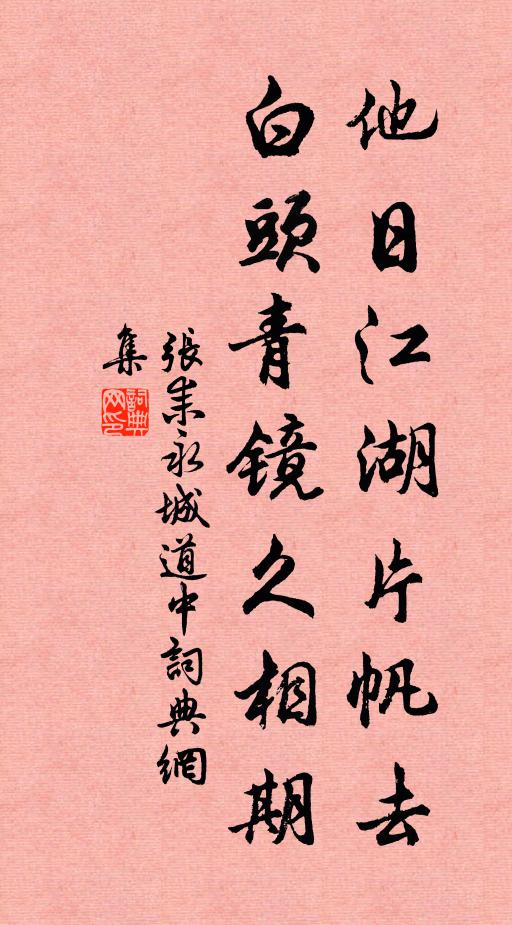 他日江湖片帆去
白頭青鏡久相期
張耒永城道中詞典網
集
詞典
网印